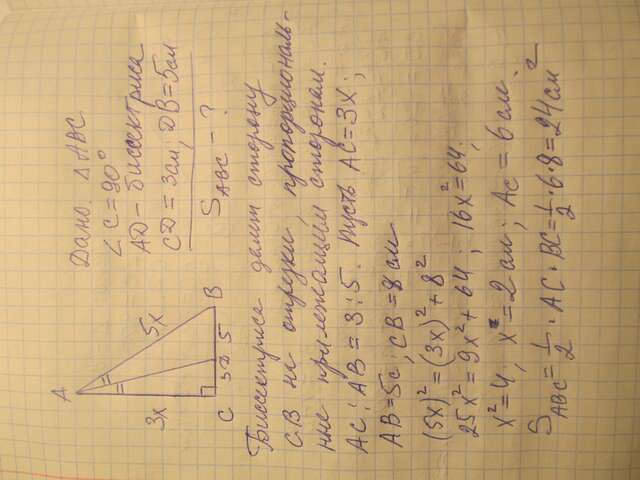 Дано: △ABC.
∠C=90°
AD - биссектриса
CD = 3см, DB = 5см
S_ABC - ?
A
3x
5x
C 3 D 5 B
Биссектриса делит сторону
CB на отрезки, пропорциональ-
ные прилежащим сторонам.
AC:AB = 3:5. Пусть AC=3x;
AB=5x; CB=8см
(5x)²=(3x)²+8²
25x²=9x²+64; 16x²=64;
x²=4, x=2см; AC=6см.
S_ABC=1/2·AC·BC=1/2·6·8=24см²